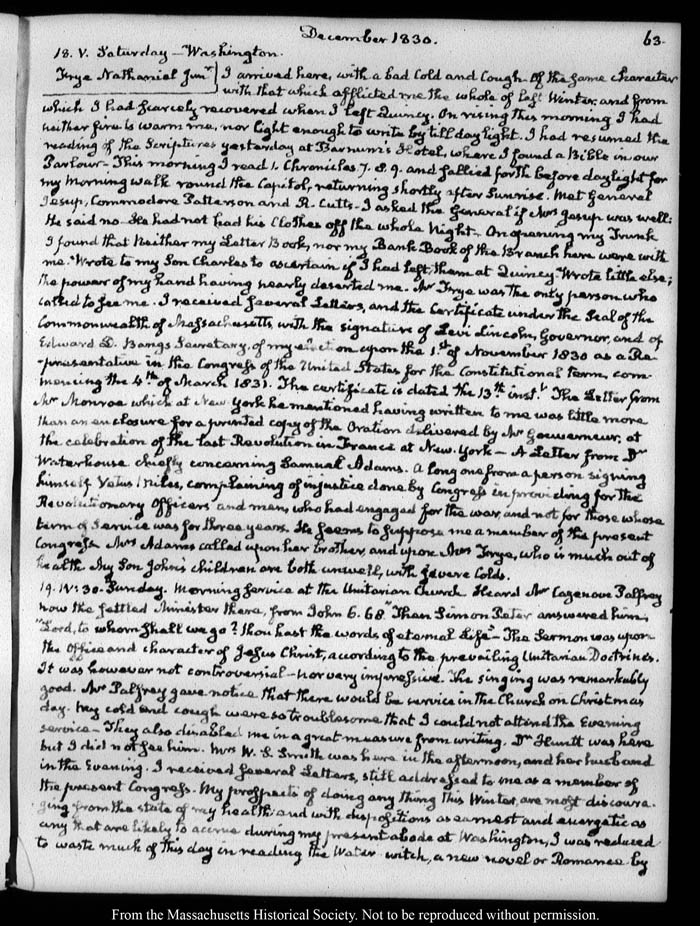 December 1830.
63.
18. V. Saturday — Washington.
Frye Nathaniel Junr. I arrived here, with a bad Cold and Cough of the same character
with that which afflicted me the whole of last Winter, and from
which I had scarcely recovered when I left Quincy. On rising this morning I had
neither fire to warm me, nor light enough to write by till day light. I had resumed the
reading of the Scriptures yesterday at Barnum's Hotel, where I found a Bible in our
Parlour — This morning I read 1. Chronicles 7. 8. 9. and sallied forth before daylight for
my morning walk round the Capitol, returning shortly after Sunrise. Met General
Jesup, Commodore Patterson and R. Cutts — I asked the General if Mrs Jesup was well:
He said no — He had not had his Clothes off the whole Night — On opening my Trunk
I found that neither my Letter Book, nor my Bank Book of the Branch here were with
me. Wrote to my Son Charles to ascertain if I had left them at Quincy. Wrote little else;
the power of my hand having nearly deserted me. Mr Frye was the only person who
called to see me. I received several Letters, and the Certificate under the Seal of the
Commonwealth of Massachusetts, with the signature of Levi Lincoln, Governor, and of
Edward D. Bangs Secretary, of my election upon the 1st. of November 1830 as a Re-
-presentative in the Congress of the United States for the Constitutional term, com-
mencing the 4th. of March 1831. The certificate is dated the 13th. inst.t The Letter from
Mr Monroe which at New York he mentioned having written to me was little more
than an enclosure for a printed copy of the Oration delivered by Mr Gouverneur, at
the celebration of the last Revolution in France at New York — A Letter from Dr
Waterhouse chiefly concerning Samuel Adams. A long one from a person signing
himself Vetus Miles, complaining of injustice done by Congress in providing for the
Revolutionary Officers and men, who had engaged for the war, and not for those whose
term of Service was for three years. He seems to suppose me a member of the present
Congress. Mrs Adams called upon her brother, and upon Mrs Frye, who is much out of
health. My Son John's children are both unwell, with severe Colds.
19. IV: 30. Sunday. Morning service at the Unitarian Church. Heard Mr Cazenove Palfrey
now the settled Minister there, from John 6. 68. "Then Simon Peter answered him,
"Lord, to whom shall we go? thou hast the words of eternal Life" — The Sermon was upon
the Office and character of Jesus Christ, according to the prevailing Unitarian Doctrines.
It was however not controversial — nor very impressive. The singing was remarkably
good. Mr Palfrey gave notice that there would be service in the Church on Christmas
day. My cold and cough were so troublesome that I could not attend the Evening
service — They also disabled me in a great measure from writing. Dr Huntt was here
but I did not see him. Mrs W. S. Smith was here in the afternoon, and her husband
in the Evening. I received several Letters, still addressed to me as a member of
the present Congress. My prospects of doing any thing this Winter, are most discoura-
ging from the state of my health; and with dispositions as earnest and energetic as
any that are likely to accrue during my present abode at Washington, I was reduced
to waste much of this day in reading the Water witch, a new novel or Romance by
From the Massachusetts Historical Society. Not to be reproduced without permission.